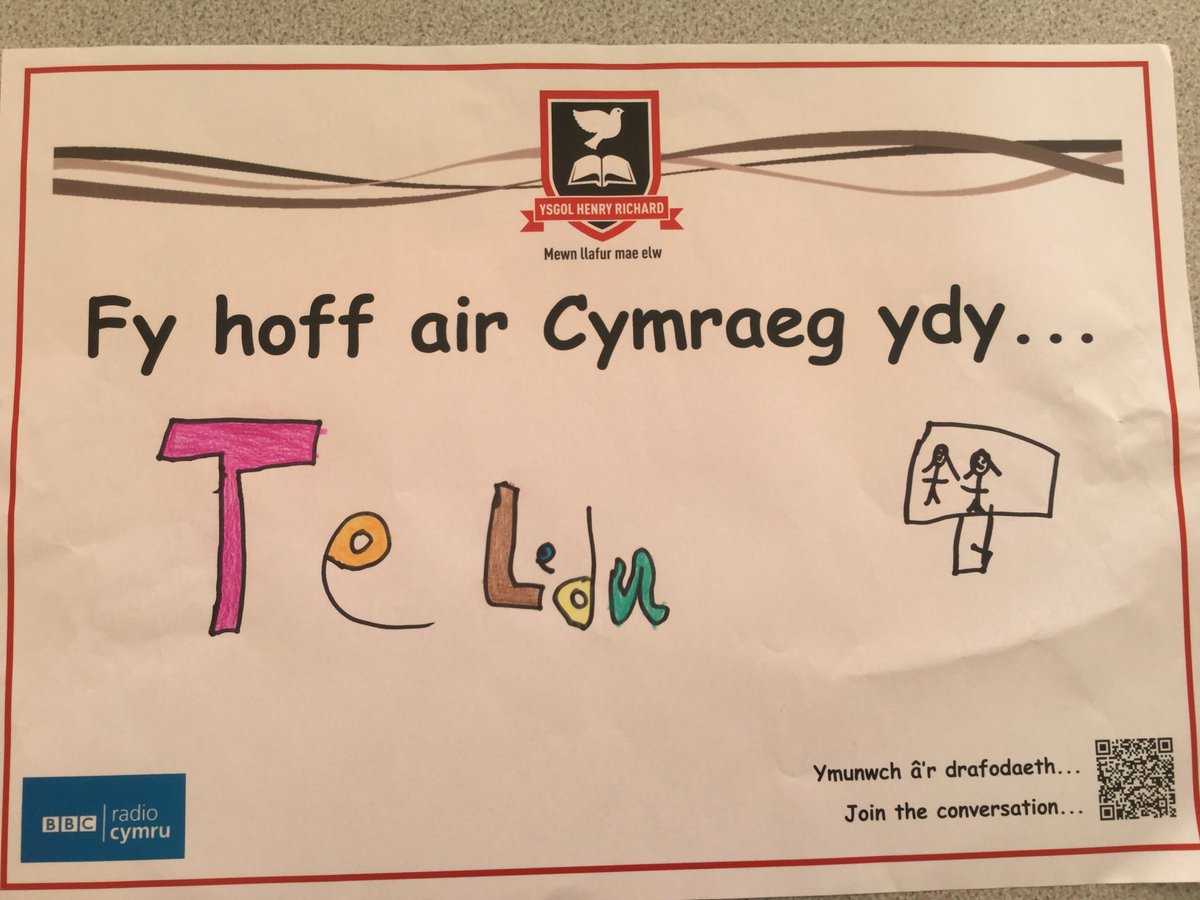 YSGOL HENRY RICHARD
Mewn llafur mae elw
Fy hoff air Cymraeg ydy...
Teledu
Ymunwch â'r drafodaeth...
Join the conversation...
BBC radio cymru